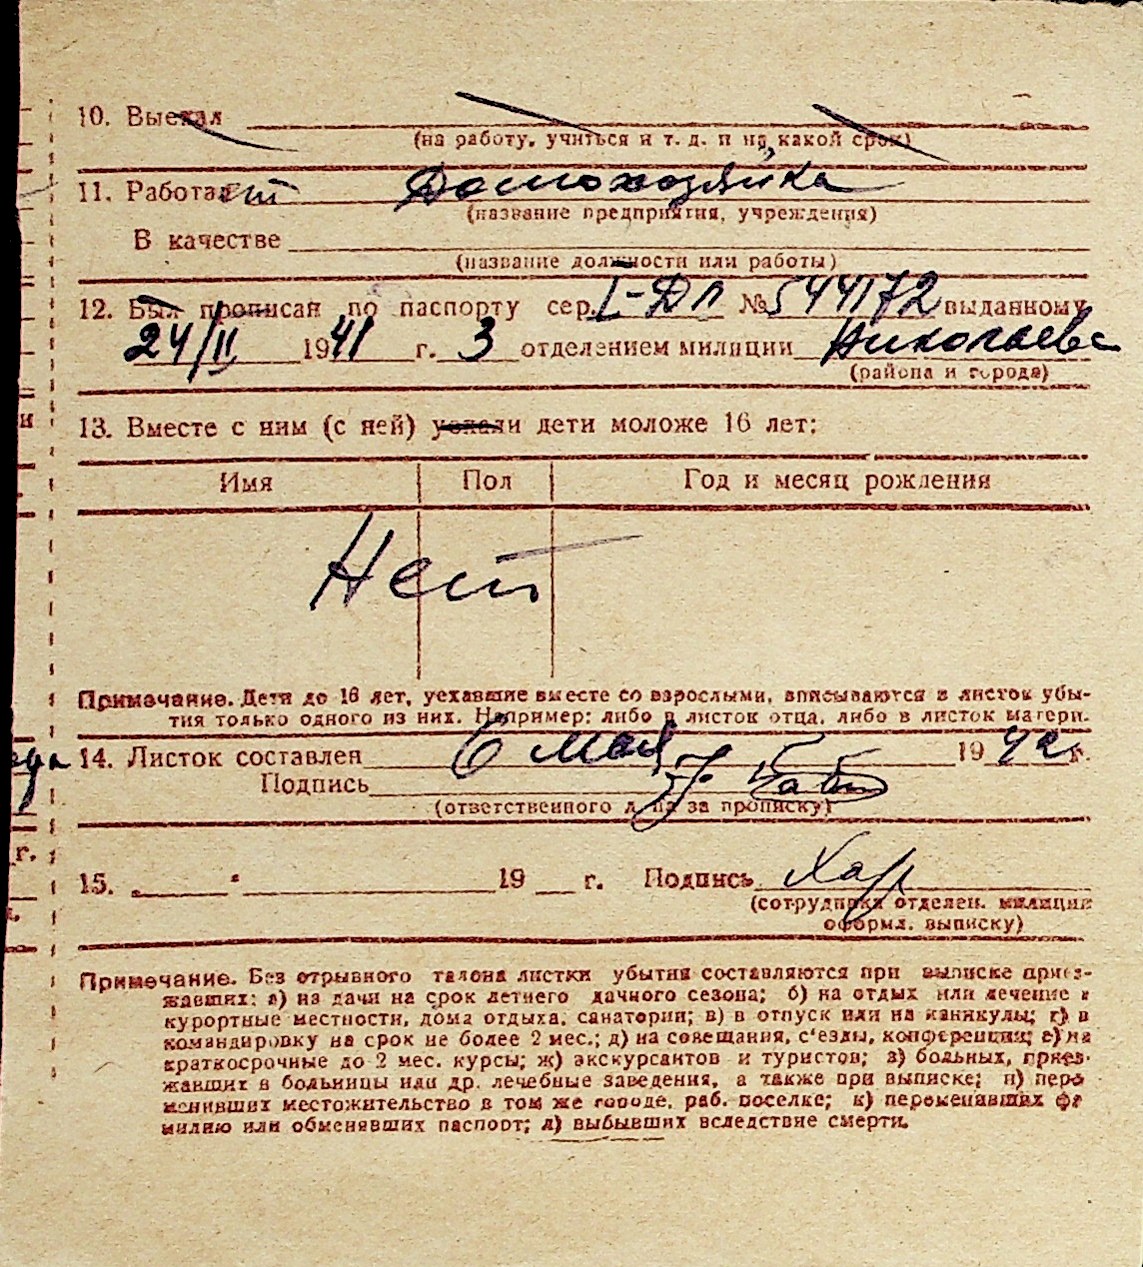 10. Выехал
(на работу, учиться и т. д. и на какой срок)
11. Работает Домохозяйка
(название предприятия, учреждения)
В качестве
(название должности или работы)
12. Был прописан по паспорту сер. I-ДЛ № 544172 выданному
24/II 1941 г. 3 отделением милиции Николаева
(района и города)
13. Вместе с ним (с ней) уехали дети моложе 16 лет:
Имя Пол Год и месяц рождения
Нет
Примечание. Дети до 16 лет, уехавшие вместе со взрослыми, вписываются в листок убы-
тия только одного из них. Например: либо в листок отца, либо в листок матери.
14. Листок составлен 6 мая 1942 г.
Подпись
(ответственного лица за прописку)
15. 19 г. Подпись Хар
(сотрудника отделен. милиции
оформл. выписку)
Примечание. Без отрывного талона листки убытия составляются при выписке приез-
жавших: а) на дачи на срок летнего дачного сезона; б) на отдых или лечение в
курортные местности, дома отдыха, санатории; в) в отпуск или на каникулы; г) в
командировку на срок не более 2 мес.; д) на совещания, с'езды, конференции; е) на
краткосрочные до 2 мес. курсы; ж) экскурсантов и туристов; з) больных, приез-
жавших в больницы или др. лечебные заведения, а также при выписке; и) пере
менивших местожительство в том же городе, раб. поселке; к) переменивших фа
милию или обменявших паспорт; л) выбывших вследствие смерти.